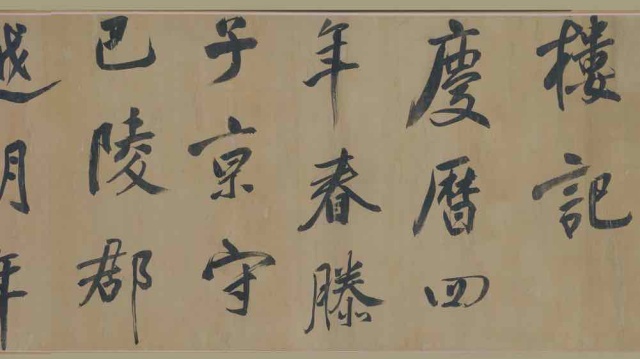 樓記
慶曆四
年春滕
子京守
巴陵郡
越明年